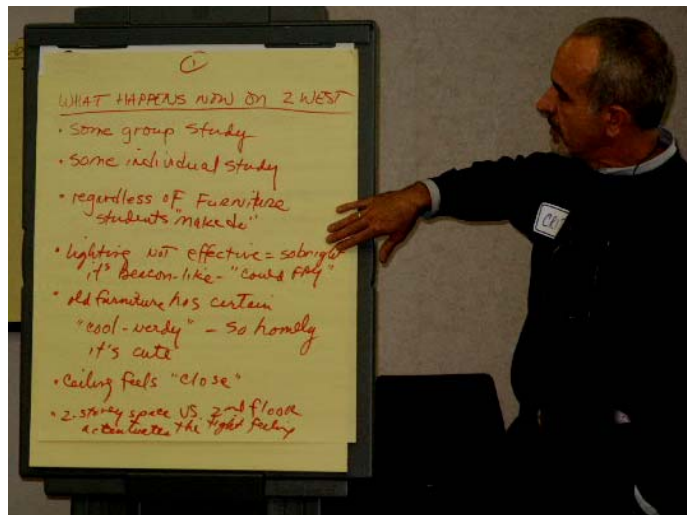 1
WHAT HAPPENS NOW ON 2 WEST
• some group study
• some individual study
• regardless OF FURNITURE
students "make do"
• lighting NOT effective = so bright
it's Beacon-like - "could FRY"
• old furniture has certain
"cool-nerdy" - so homely
it's cute
• ceiling feels "close"
• 2-storey space VS. 2nd floor
actentuates the tight feeling